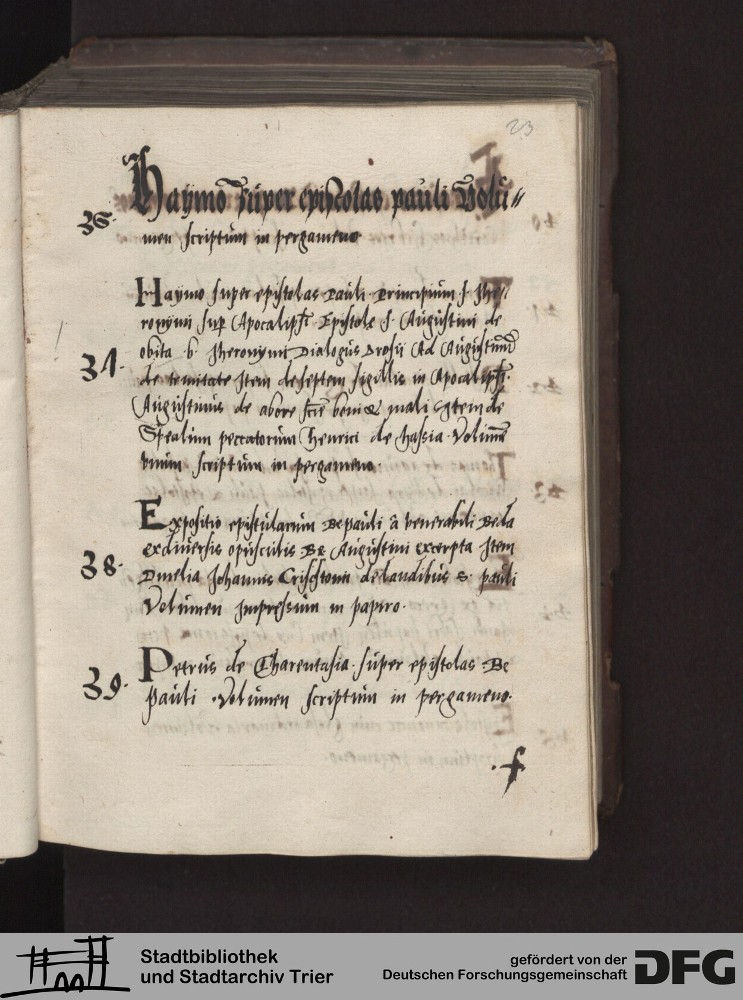 23
Haÿmo super epistolas pauli Volu=
36.
men scriptum in pergameno
Haymo super epistolas Pauli. Principium s. Jhe=
ronymi sup Apocalipsi Epistola s. Augustini de
obita b. Jheronymi Dialogus Orosii Ad Augustinum
37.
de trinitate Item de septem sigillis in Apocalipsi.
Augustinus de abore scie boni & mali Item de
Speculum peccatorum Henrici de hassia. Volume
unum scriptum in pergameno.
Expositio epistularum Be pauli a venerabili Beda
ex diuersis opusculis Be Augustini excerpta Item
38.
Omelia Johannis Crisostomi de laudibus S. pauli
Volumen Impressum in papiro.
Petrus de Tharentasia super epistolas Be
39.
Pauli Volumen scriptum in pergameno.
f
Stadtbibliothek
und Stadtarchiv Trier
gefördert von der
Deutschen Forschungsgemeinschaft
DFG